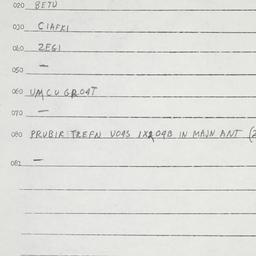 020 BETU
030 CIAFKI
040 ZEGI
050 —
060 UMCU GROAT
070 —
080 PRUBIR TREFN VOAS IN MAIN ANT
082 —